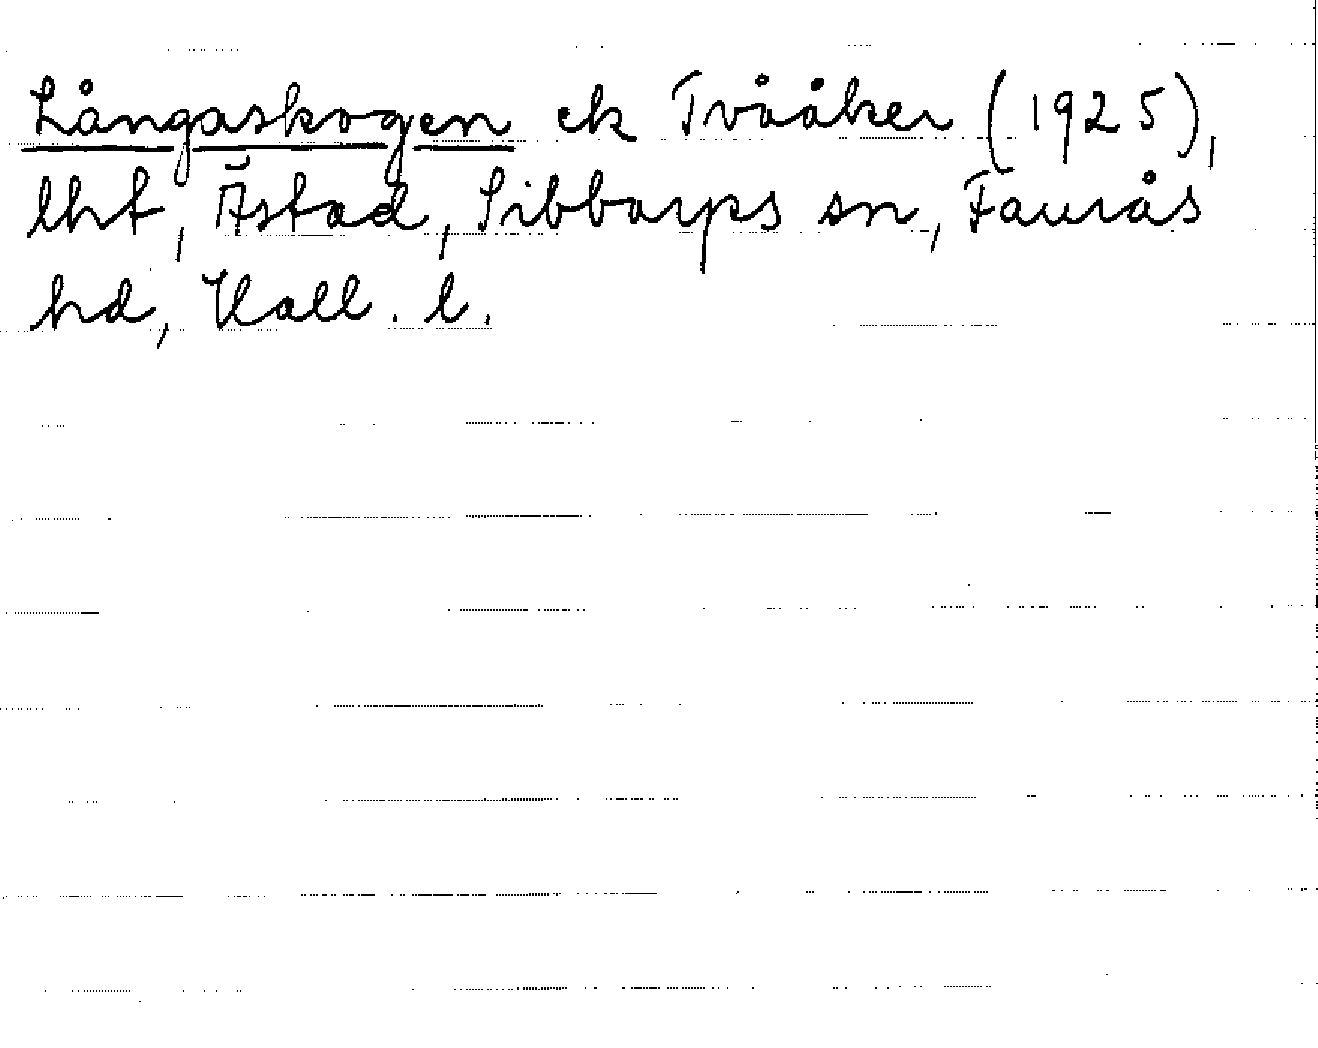 Långaskogen ek Tvååker (1925),
lht, Ästad, Sibbarps sn, Faurås
hd, Hall. l.